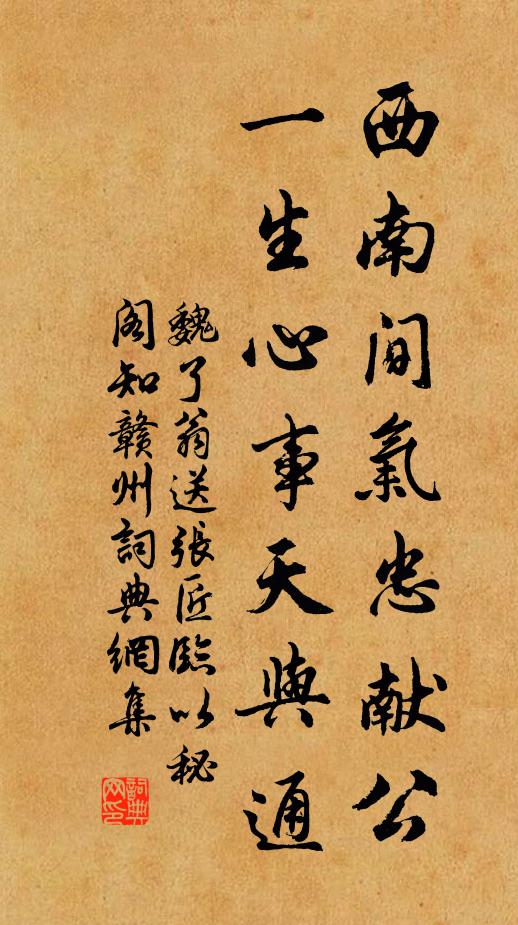 西南间氣忠献公
一生心事天與通
魏了翁送張匠臨以秘
阁知贛州詞典網集
詞典
网印